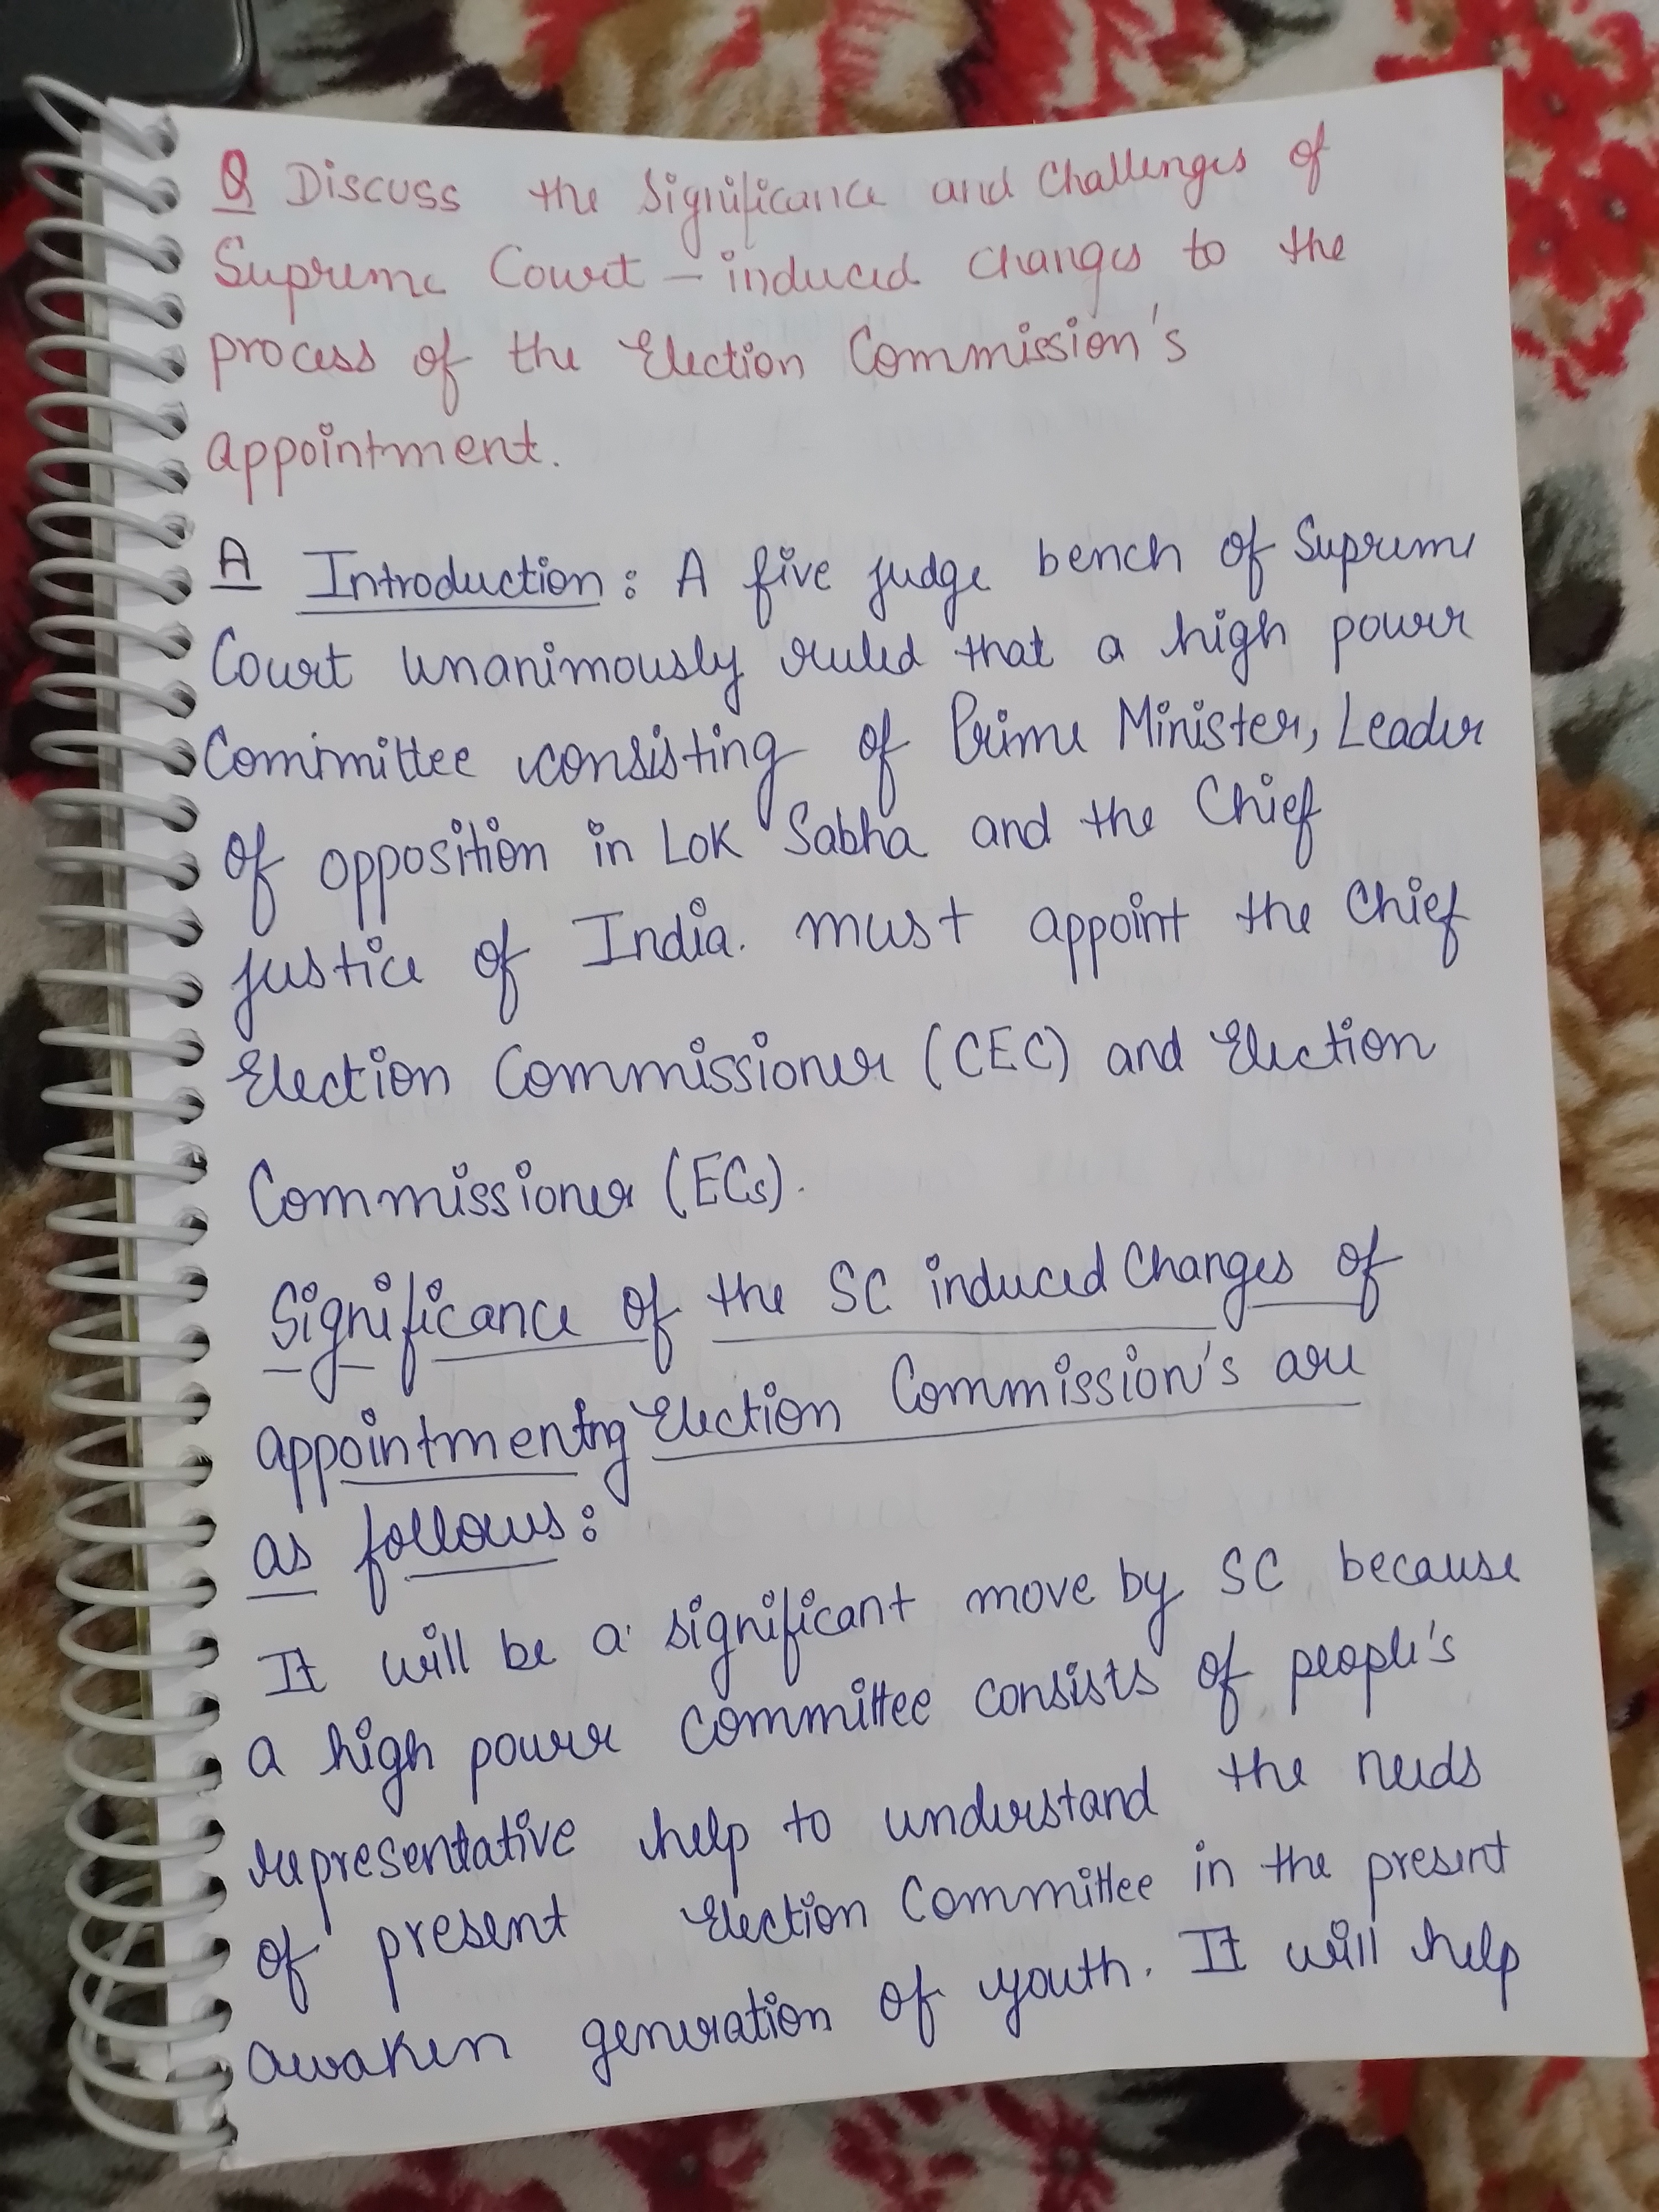 Q Discuss the Significance and Challenges of
Supreme Court - induced changes to the
process of the Election Commission's
appointment.
A Introduction : A five judge bench of Supreme
Court unanimously ruled that a high power
Committee consisting of Prime Minister, Leader
of opposition in Lok Sabha and the Chief
justice of India. must appoint the Chief
Election Commissioner (CEC) and Election
Commissioner (ECs).
Significance of the SC induced Changes of
appointmenting Election Commission's are
as follows :
It will be a significant move by SC because
a high power committee consists of people's
representative help to understand the needs
of present Election Committee in the present
awaken generation of youth. It will help